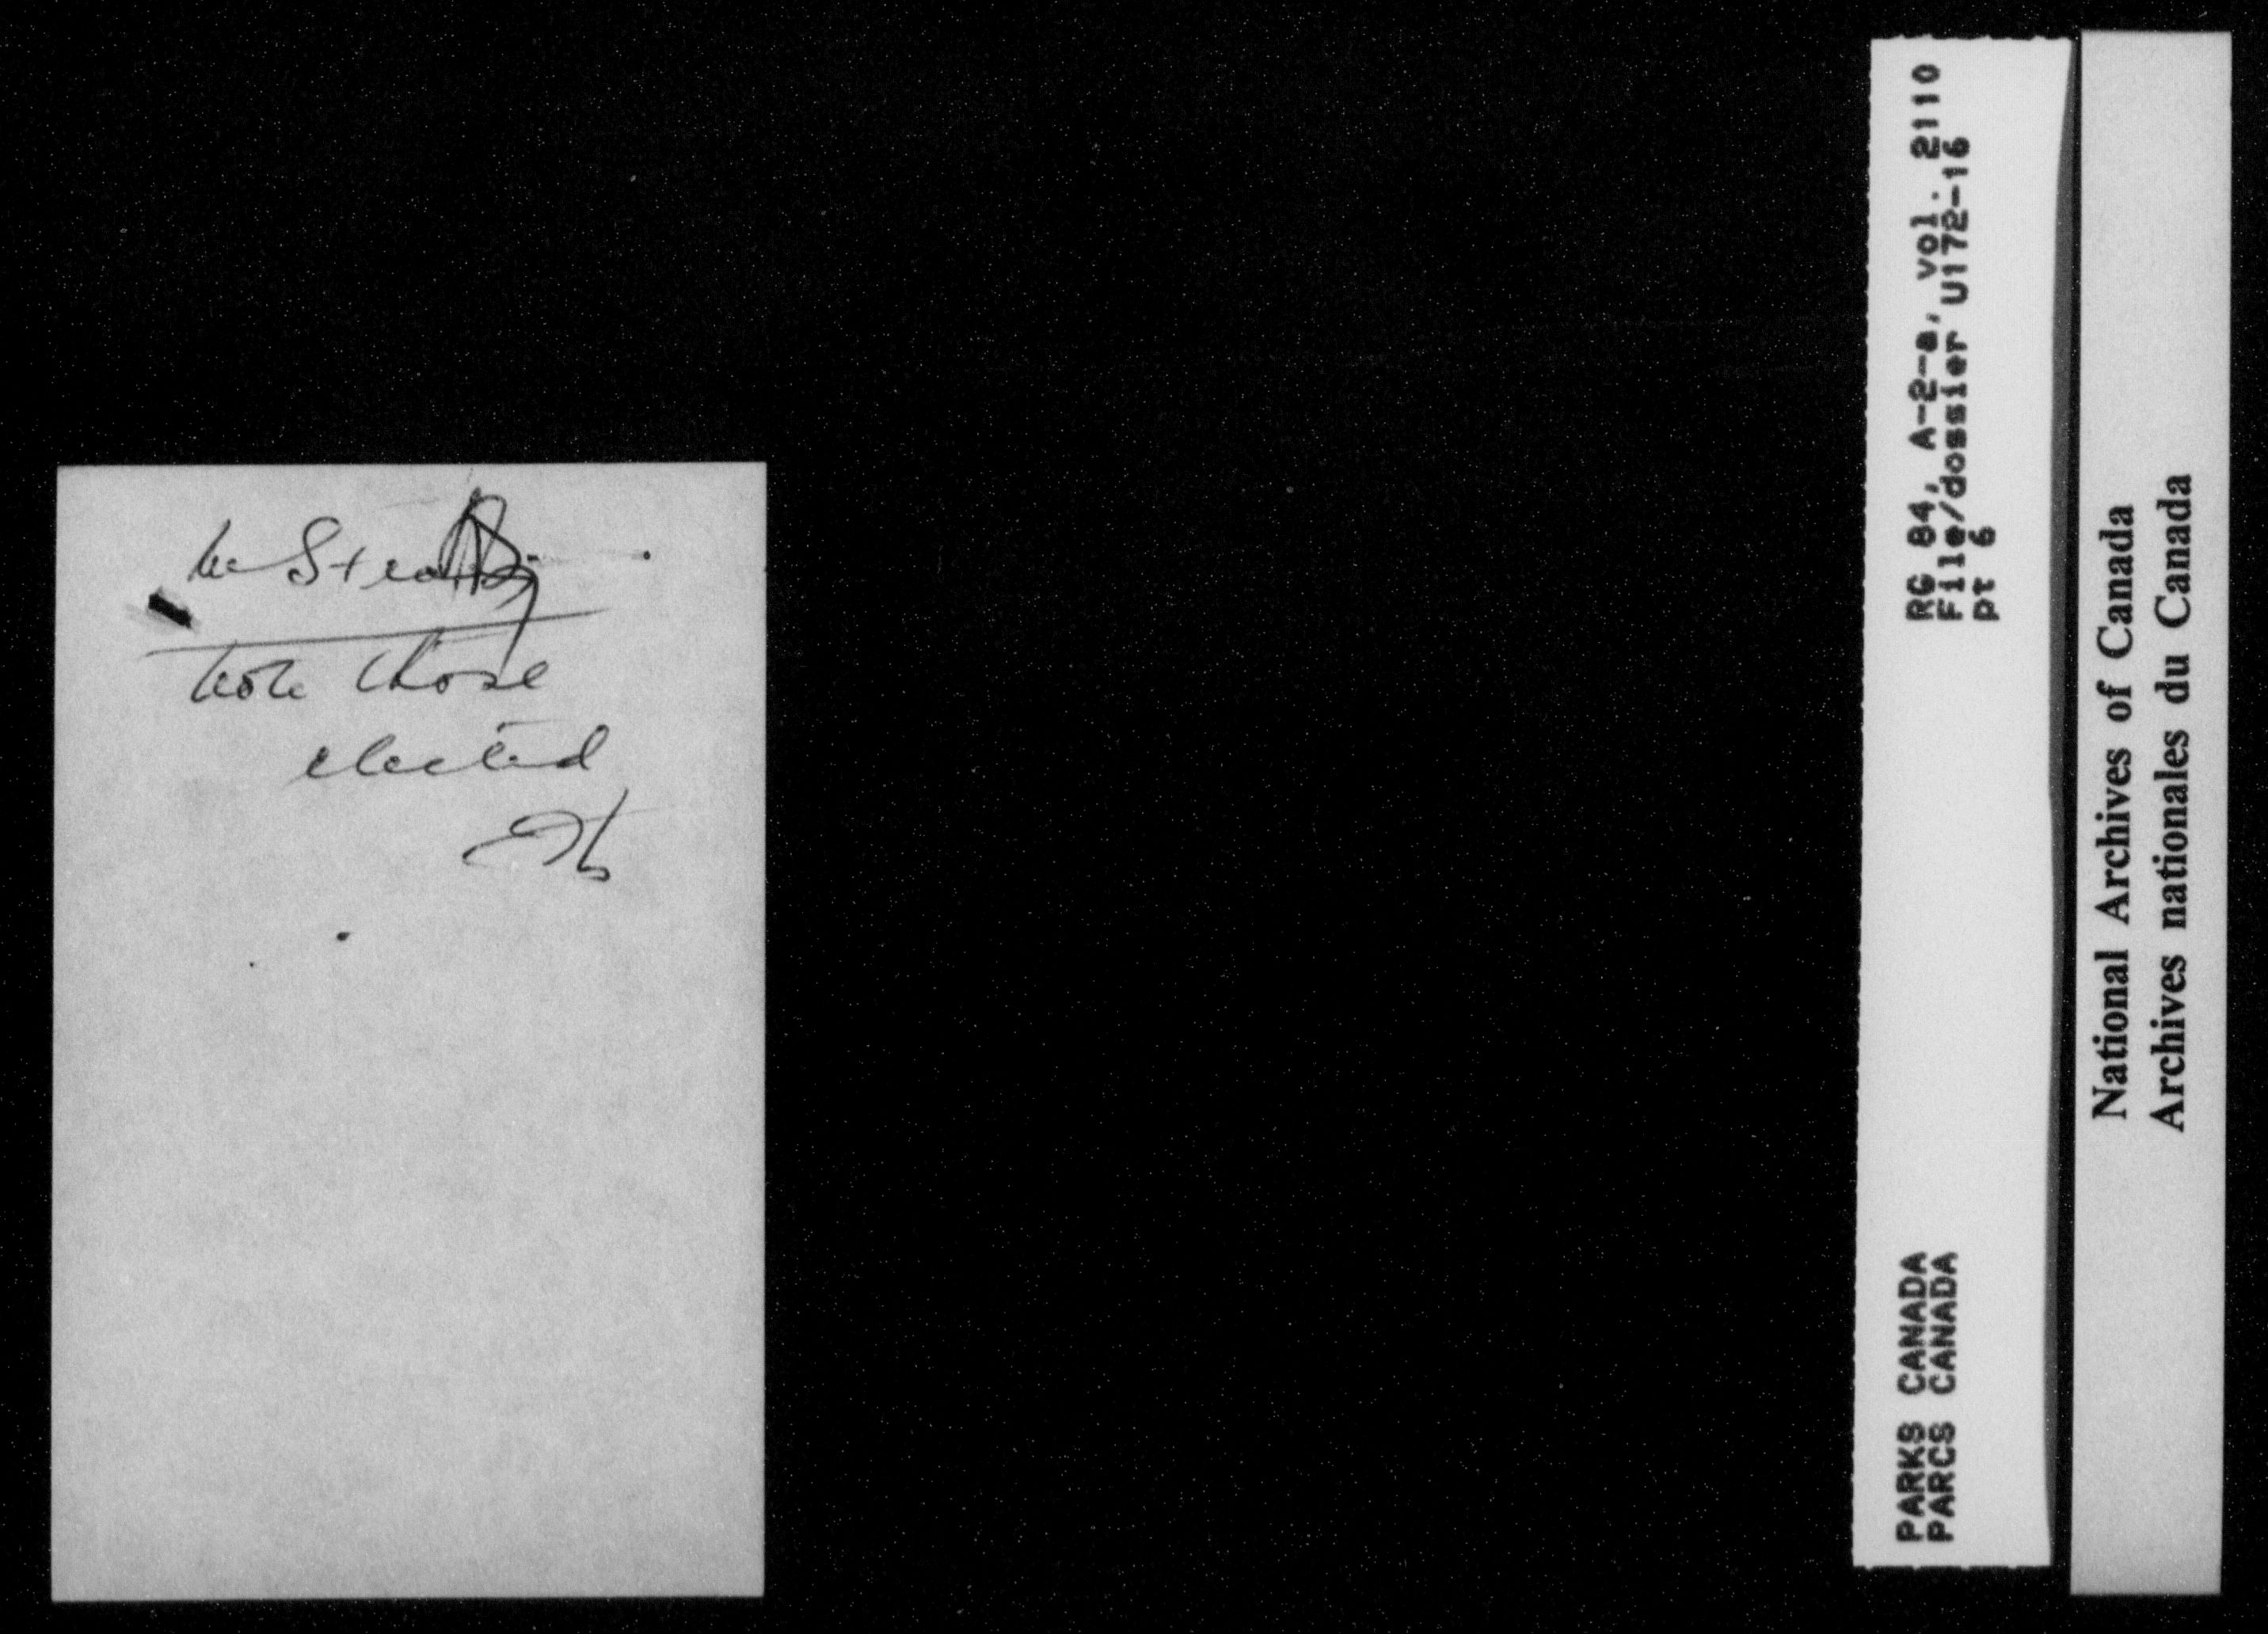 Note those
elected
RG 84, A-2-a, vol. 2110
File/dossier U172-16
pt 6
PARKS CANADA
PARCS CANADA
National Archives of Canada
Archives nationales du Canada